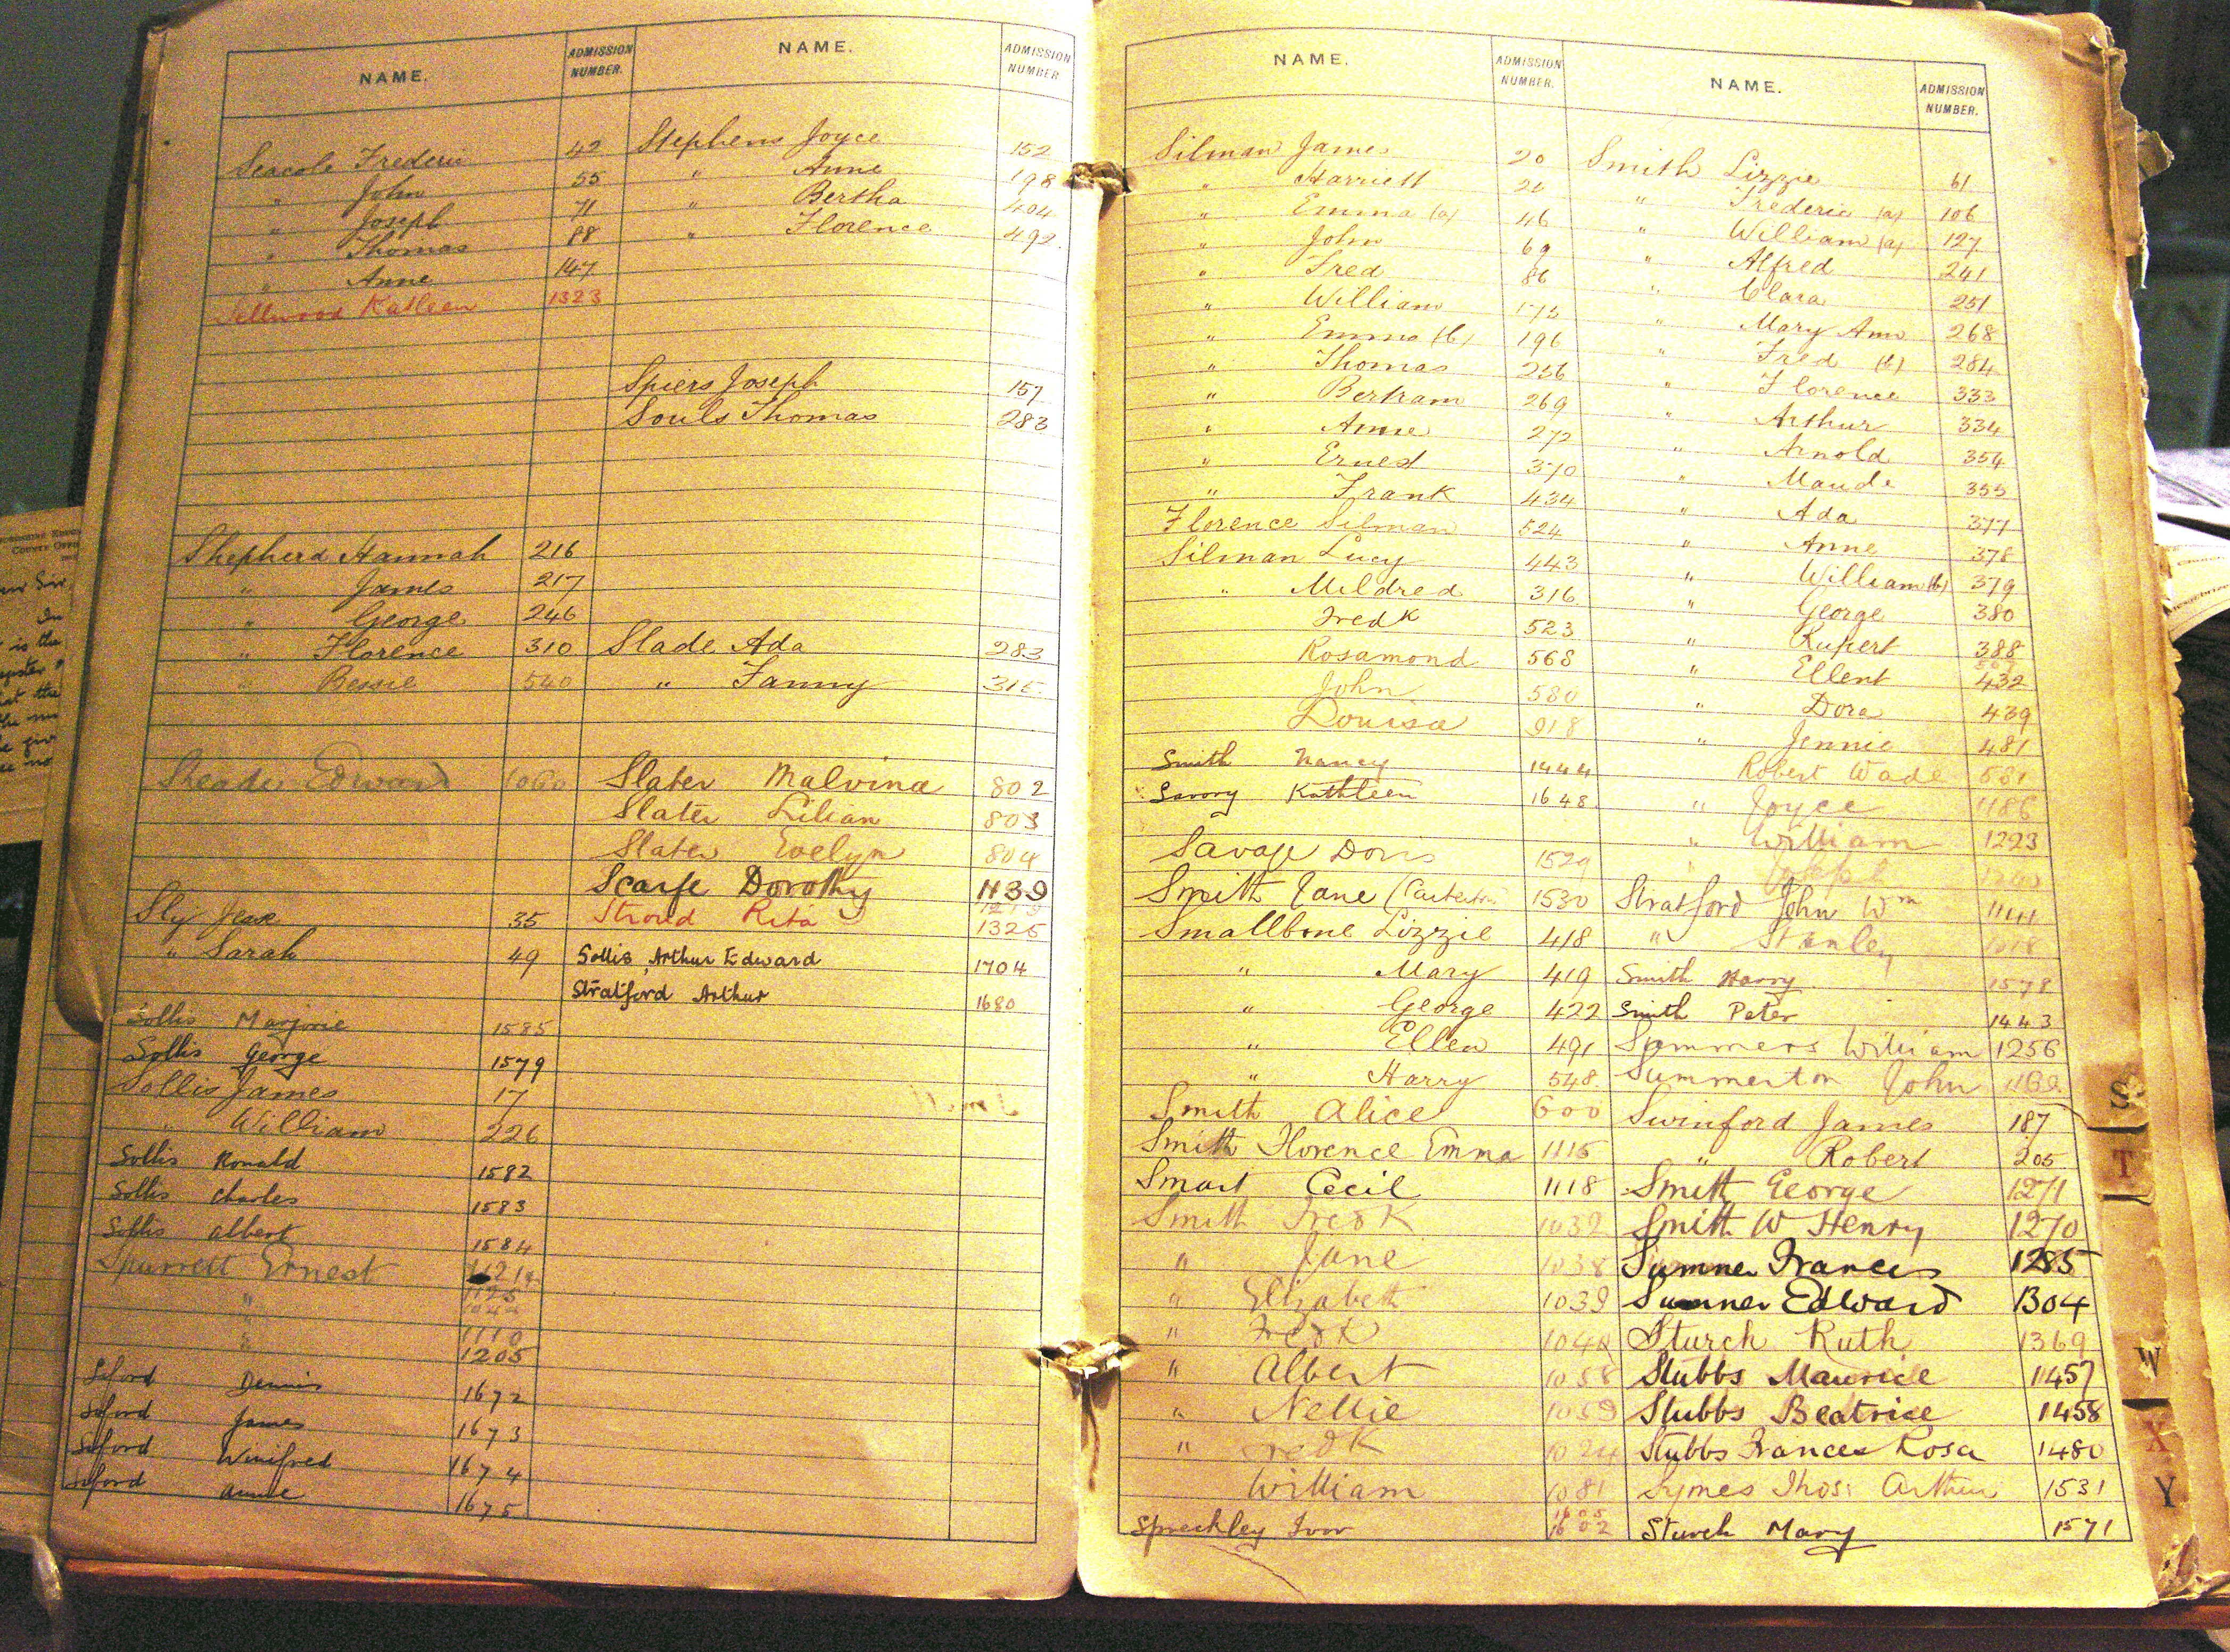 NAME. ADMISSION NUMBER. NAME. ADMISSION NUMBER
Seacole Frederic 42 Stephens Joyce 152
" John 55 " Anne 198
" Joseph 71 " Bertha 404
" Thomas 88 " Florence 492
" Anne 147
Sellwood Katleen 1323
Spiers Joseph 157
Souls Thomas 283
Shepherd Hannah 216
" James 217
" George 246
" Florence 310 Slade Ada 283
" Bessie 540 " Fanny 315
Edward 1060 Slater Malvina 802
Slater Lilian 803
Slater Evelyn 804
Scarfe Dorothy 1139
Sly 35 Stroud Rita 1325
" Sarah 49 Sollis Arthur Edward 1704
Stratford Arthur 1680
Sollis Marjorie 1585
Sollis George 1579
Sollis James 17
" William 226
Sollis Ronald 1582
Sollis Charles 1583
Sollis Albert 1584
Spurrett Ernest
" 1125
"
" 1110
1205
Seford Dennis 1672
Seford James 1673
Seford Winifred 1674
Seford Annie 1675
NAME. ADMISSION NUMBER. NAME. ADMISSION NUMBER.
Silman James 20 Smith Lizzie 61
" Harriett " Frederic (a) 106
" Emma (a) 46 " William (a) 127
" John 69 " Alfred 241
" Fred 86 " Clara 251
" William " Mary Ann 268
" Emma (b) 196 " Fred (b) 284
" Thomas 256 " Florence 333
" Bertram 269 " Arthur 334
" Anne 272 " Arnold 354
" Ernest 370 " Maude 355
" Frank 434 " Ada 377
Florence Silman 524 " Anne 378
Silman Lucy 443 " William (b) 379
" Mildred 316 " George 380
Fredk 523 " Rupert 388
Rosamond 568 " Ellen 432
John 580 " Dora 439
Louisa 918 " Jennie 481
Smith Nancy 1444 Robert Wade 581
Savory Kathleen 1648 " Joyce 1186
" William 1223
Savage Doris 1529
Smith Jane 1530 Stratford John Wm 1141
Smallbone Lizzie 418 " Stanley
" Mary 419 Smith Harry 1578
" George 422 Smith Peter 1443
" Ellen 491 Summers William 1256
" Harry 548 Summerton John
Smith Alice 600 Swinford James 187
Smith Florence Emma 1115 " Robert 205
Smart Cecil 1118 Smith George 1271
Smith Fredk 1032 Smith W Henry 1270
" Jane 1038 Sumner Frances 1285
" Elizabeth 1039 Sumner Edward 1304
" Fredk Sturch Ruth 1369
" Albert 1058 Stubbs Maurice 1457
" Nellie 1059 Stubbs Beatrice 1458
" Fredk 1024 Stubbs Frances Rosa 1480
William 1081 Symes Thos: Arthur 1531
Spreckley Ivor 1602 Sturch Mary 1571
S
T
W
X
Y